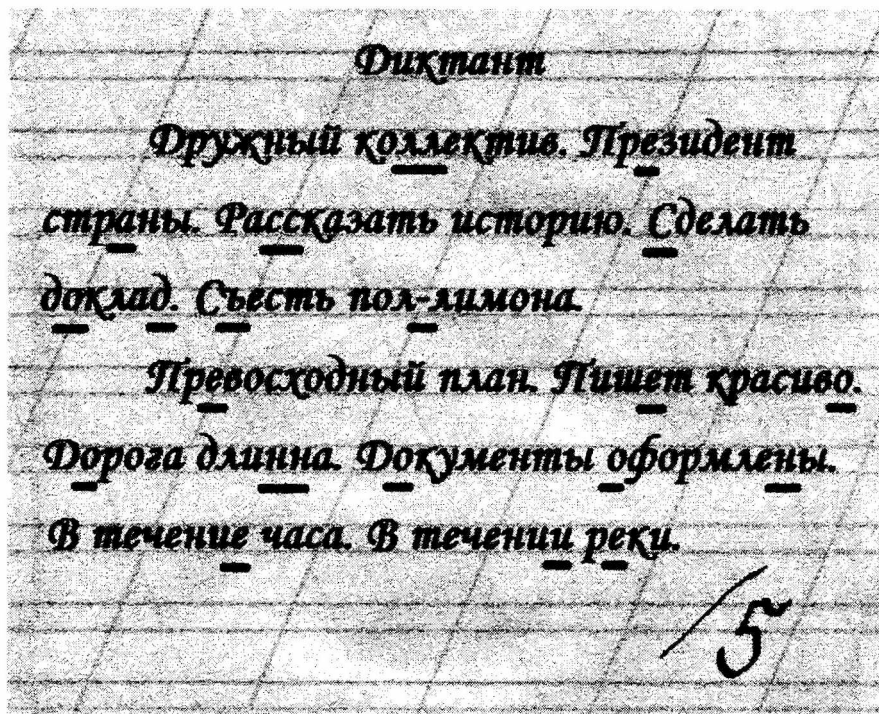 Диктант
Дружный коллектив. Президент
страны. Рассказать историю. Сделать
доклад. Съесть пол-лимона.
Превосходный план. Пишет красиво.
Дорога длинна. Документы оформлены.
В течение часа. В течении реки.
5